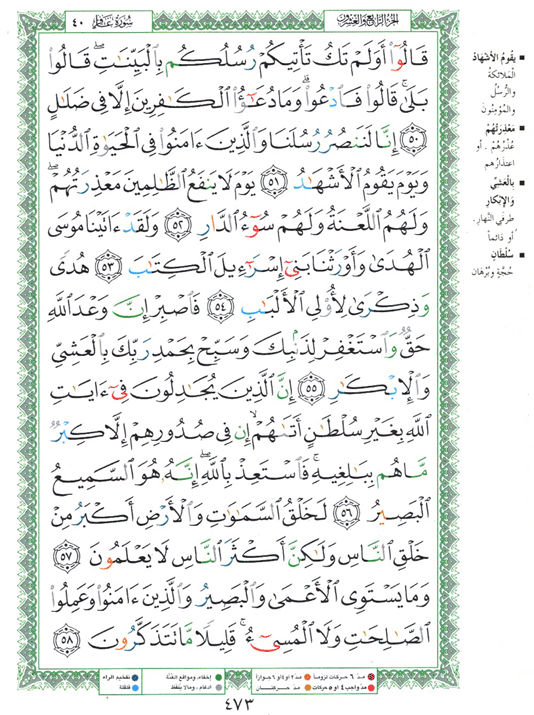 سُورَةُ غَافِرٍ ٤٠
الجزء الرابع والعشرون
قَالُوٓا۟ أَوَلَمْ تَكُ تَأْتِيكُمْ رُسُلُكُم بِٱلْبَيِّنَـٰتِ ۖ قَالُوا۟
بَلَىٰ ۚ قَالُوا۟ فَٱدْعُوا۟ ۗ وَمَا دُعَـٰٓؤُا۟ ٱلْكَـٰفِرِينَ إِلَّا فِى ضَلَـٰلٍ
﴿٥٠﴾ إِنَّا لَنَنصُرُ رُسُلَنَا وَٱلَّذِينَ ءَامَنُوا۟ فِى ٱلْحَيَوٰةِ ٱلدُّنْيَا
وَيَوْمَ يَقُومُ ٱلْأَشْهَـٰدُ ﴿٥١﴾ يَوْمَ لَا يَنفَعُ ٱلظَّـٰلِمِينَ مَعْذِرَتُهُمْ ۖ
وَلَهُمُ ٱللَّعْنَةُ وَلَهُمْ سُوٓءُ ٱلدَّارِ ﴿٥٢﴾ وَلَقَدْ ءَاتَيْنَا مُوسَى
ٱلْهُدَىٰ وَأَوْرَثْنَا بَنِىٓ إِسْرَٰٓءِيلَ ٱلْكِتَـٰبَ ﴿٥٣﴾ هُدًى
وَذِكْرَىٰ لِأُو۟لِى ٱلْأَلْبَـٰبِ ﴿٥٤﴾ فَٱصْبِرْ إِنَّ وَعْدَ ٱللَّهِ
حَقٌّ وَٱسْتَغْفِرْ لِذَنۢبِكَ وَسَبِّحْ بِحَمْدِ رَبِّكَ بِٱلْعَشِىِّ
وَٱلْإِبْكَـٰرِ ﴿٥٥﴾ إِنَّ ٱلَّذِينَ يُجَـٰدِلُونَ فِىٓ ءَايَـٰتِ
ٱللَّهِ بِغَيْرِ سُلْطَـٰنٍ أَتَىٰهُمْ ۙ إِن فِى صُدُورِهِمْ إِلَّا كِبْرٌ
مَّا هُم بِبَـٰلِغِيهِ ۚ فَٱسْتَعِذْ بِٱللَّهِ ۖ إِنَّهُۥ هُوَ ٱلسَّمِيعُ
ٱلْبَصِيرُ ﴿٥٦﴾ لَخَلْقُ ٱلسَّمَـٰوَٰتِ وَٱلْأَرْضِ أَكْبَرُ مِنْ
خَلْقِ ٱلنَّاسِ وَلَـٰكِنَّ أَكْثَرَ ٱلنَّاسِ لَا يَعْلَمُونَ ﴿٥٧﴾
وَمَا يَسْتَوِى ٱلْأَعْمَىٰ وَٱلْبَصِيرُ وَٱلَّذِينَ ءَامَنُوا۟ وَعَمِلُوا۟
ٱلصَّـٰلِحَـٰتِ وَلَا ٱلْمُسِىٓءُ ۚ قَلِيلًا مَّا تَتَذَكَّرُونَ ﴿٥٨﴾
■ يَقُومُ الأَشْهَادُ
المَلائكةُ
والرُّسُلُ
والمُؤْمِنُونَ
■ مَعْذِرَتُهُمْ
عُذْرُهُمْ. أو
اعتذارُهم
■ بِالعَشِيِّ
وَالإِبْكَارِ
طرفي النَّهارِ.
أو دَائماً
■ سُلْطَانٍ
حُجَّةٍ وبُرْهَانٍ
مدّ ٦ حركات لزوماً
مدّ ٢ أو ٤ أو ٦ جوازاً
مدّ واجب ٤ أو ٥ حركات
مدّ حركتان
إخفاء، ومواقع الغُنَّة
ادغام، ومالا يُلفظ
تفخيم الراء
قلقلة
٤٧٣